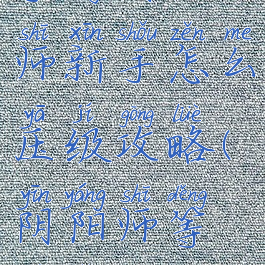 shī xīn shǒu zěn me
师新手怎么
yā jí gōng lüè
压级攻略(
yīn yáng shī děng
阴阳师等